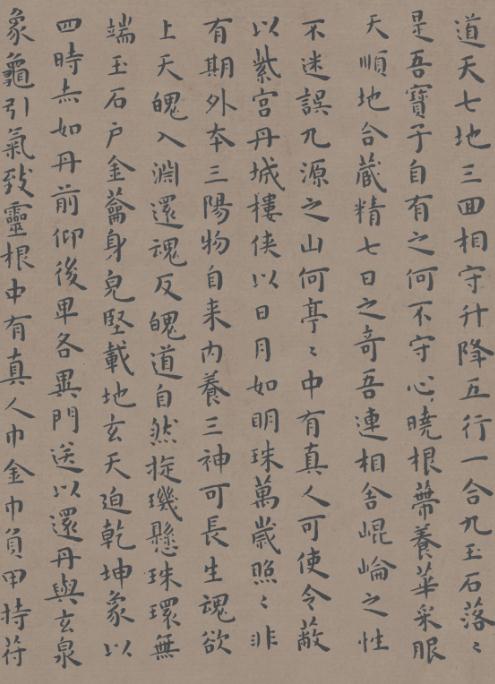 道天七地三回相守升降五行一合九玉石落〻
是吾寶子自有之何不守心曉根蒂養華采眼
天順地合藏精七日之奇吾連相舍崐崘之性
不迷誤九源之山何亭〻中有真人可使令蔽
以紫宮丹城樓俠以日月如明珠萬歲照〻非
有期外夲三陽物自来内養三神可長生魂欲
上天魄入淵還魂反魄道自然㨁璣懸珠環無
端玉石戶金蘥身皃堅載地玄天迫乾坤象以
四時赤如丹前仰後卑各異門送以還丹與玄泉
象龜引氣致靈根中有真人巾金巾負甲持符